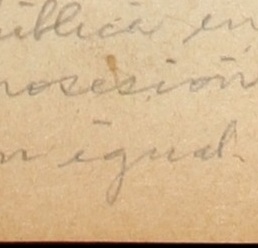 ública en
nosesión
n igual.